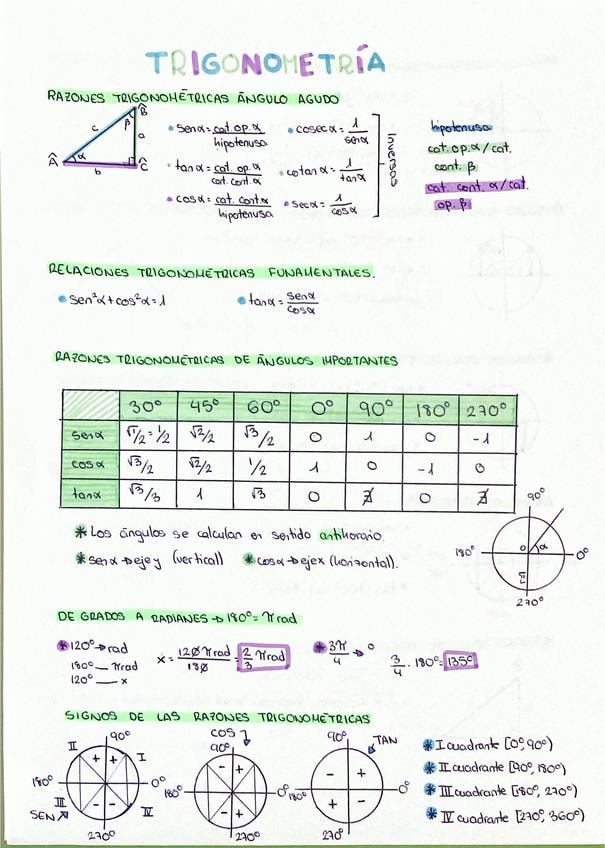 TRIGONOMETRÍA
RAZONES TRIGONOMÉTRICAS ÁNGULO AGUDO
B̂
β
c
a
Â
α
Ĉ
b
• senα = cat. op. α / hipotenusa
• cosecα = 1 / senα
• tanα = cat. op. α / cat. cont. α
• cotanα = 1 / tanα
• cosα = cat. cont α / hipotenusa
• secα = 1 / cosα
hipotenusa
cat. op. α / cat.
cont. β
cat. cont. α / cat.
op. β
RELACIONES TRIGONOMÉTRICAS FUNAMENTALES.
• sen²α + cos²α = 1
• tanα = senα / cosα
RAZONES TRIGONOMÉTRICAS DE ÁNGULOS IMPORTANTES
30º 45º 60º 0º 90º 180º 270º
senα √1/2 = 1/2 √2/2 √3/2 0 1 0 -1
cosα √3/2 √2/2 1/2 1 0 -1 0
tanα √3/3 1 √3 0 ∄ 0 ∄
* Los ángulos se calculan en sentido antihorario.
* senα → eje y (vertical)
* cosα → eje x (horizontal).
90º
180º
0
α
0º
270º
DE GRADOS A RADIANES → 180º = π rad
* 120º → rad
180º — π rad
120º — x
x = 120 π rad / 180 = 2/3 π rad
* 3π/4 → º
3/4 · 180º = 135º
SIGNOS DE LAS RAZONES TRIGONOMÉTRICAS
90º
II
I
+ +
180º
0º
- -
III
IV
SEN
270º
COS
90º
- +
180º
0º
- +
270º
90º
TAN
- +
180º
0º
+ -
270º
* I cuadrante [0º, 90º)
* II cuadrante [90º, 180º)
* III cuadrante [180º, 270º)
* IV cuadrante [270º, 360º)